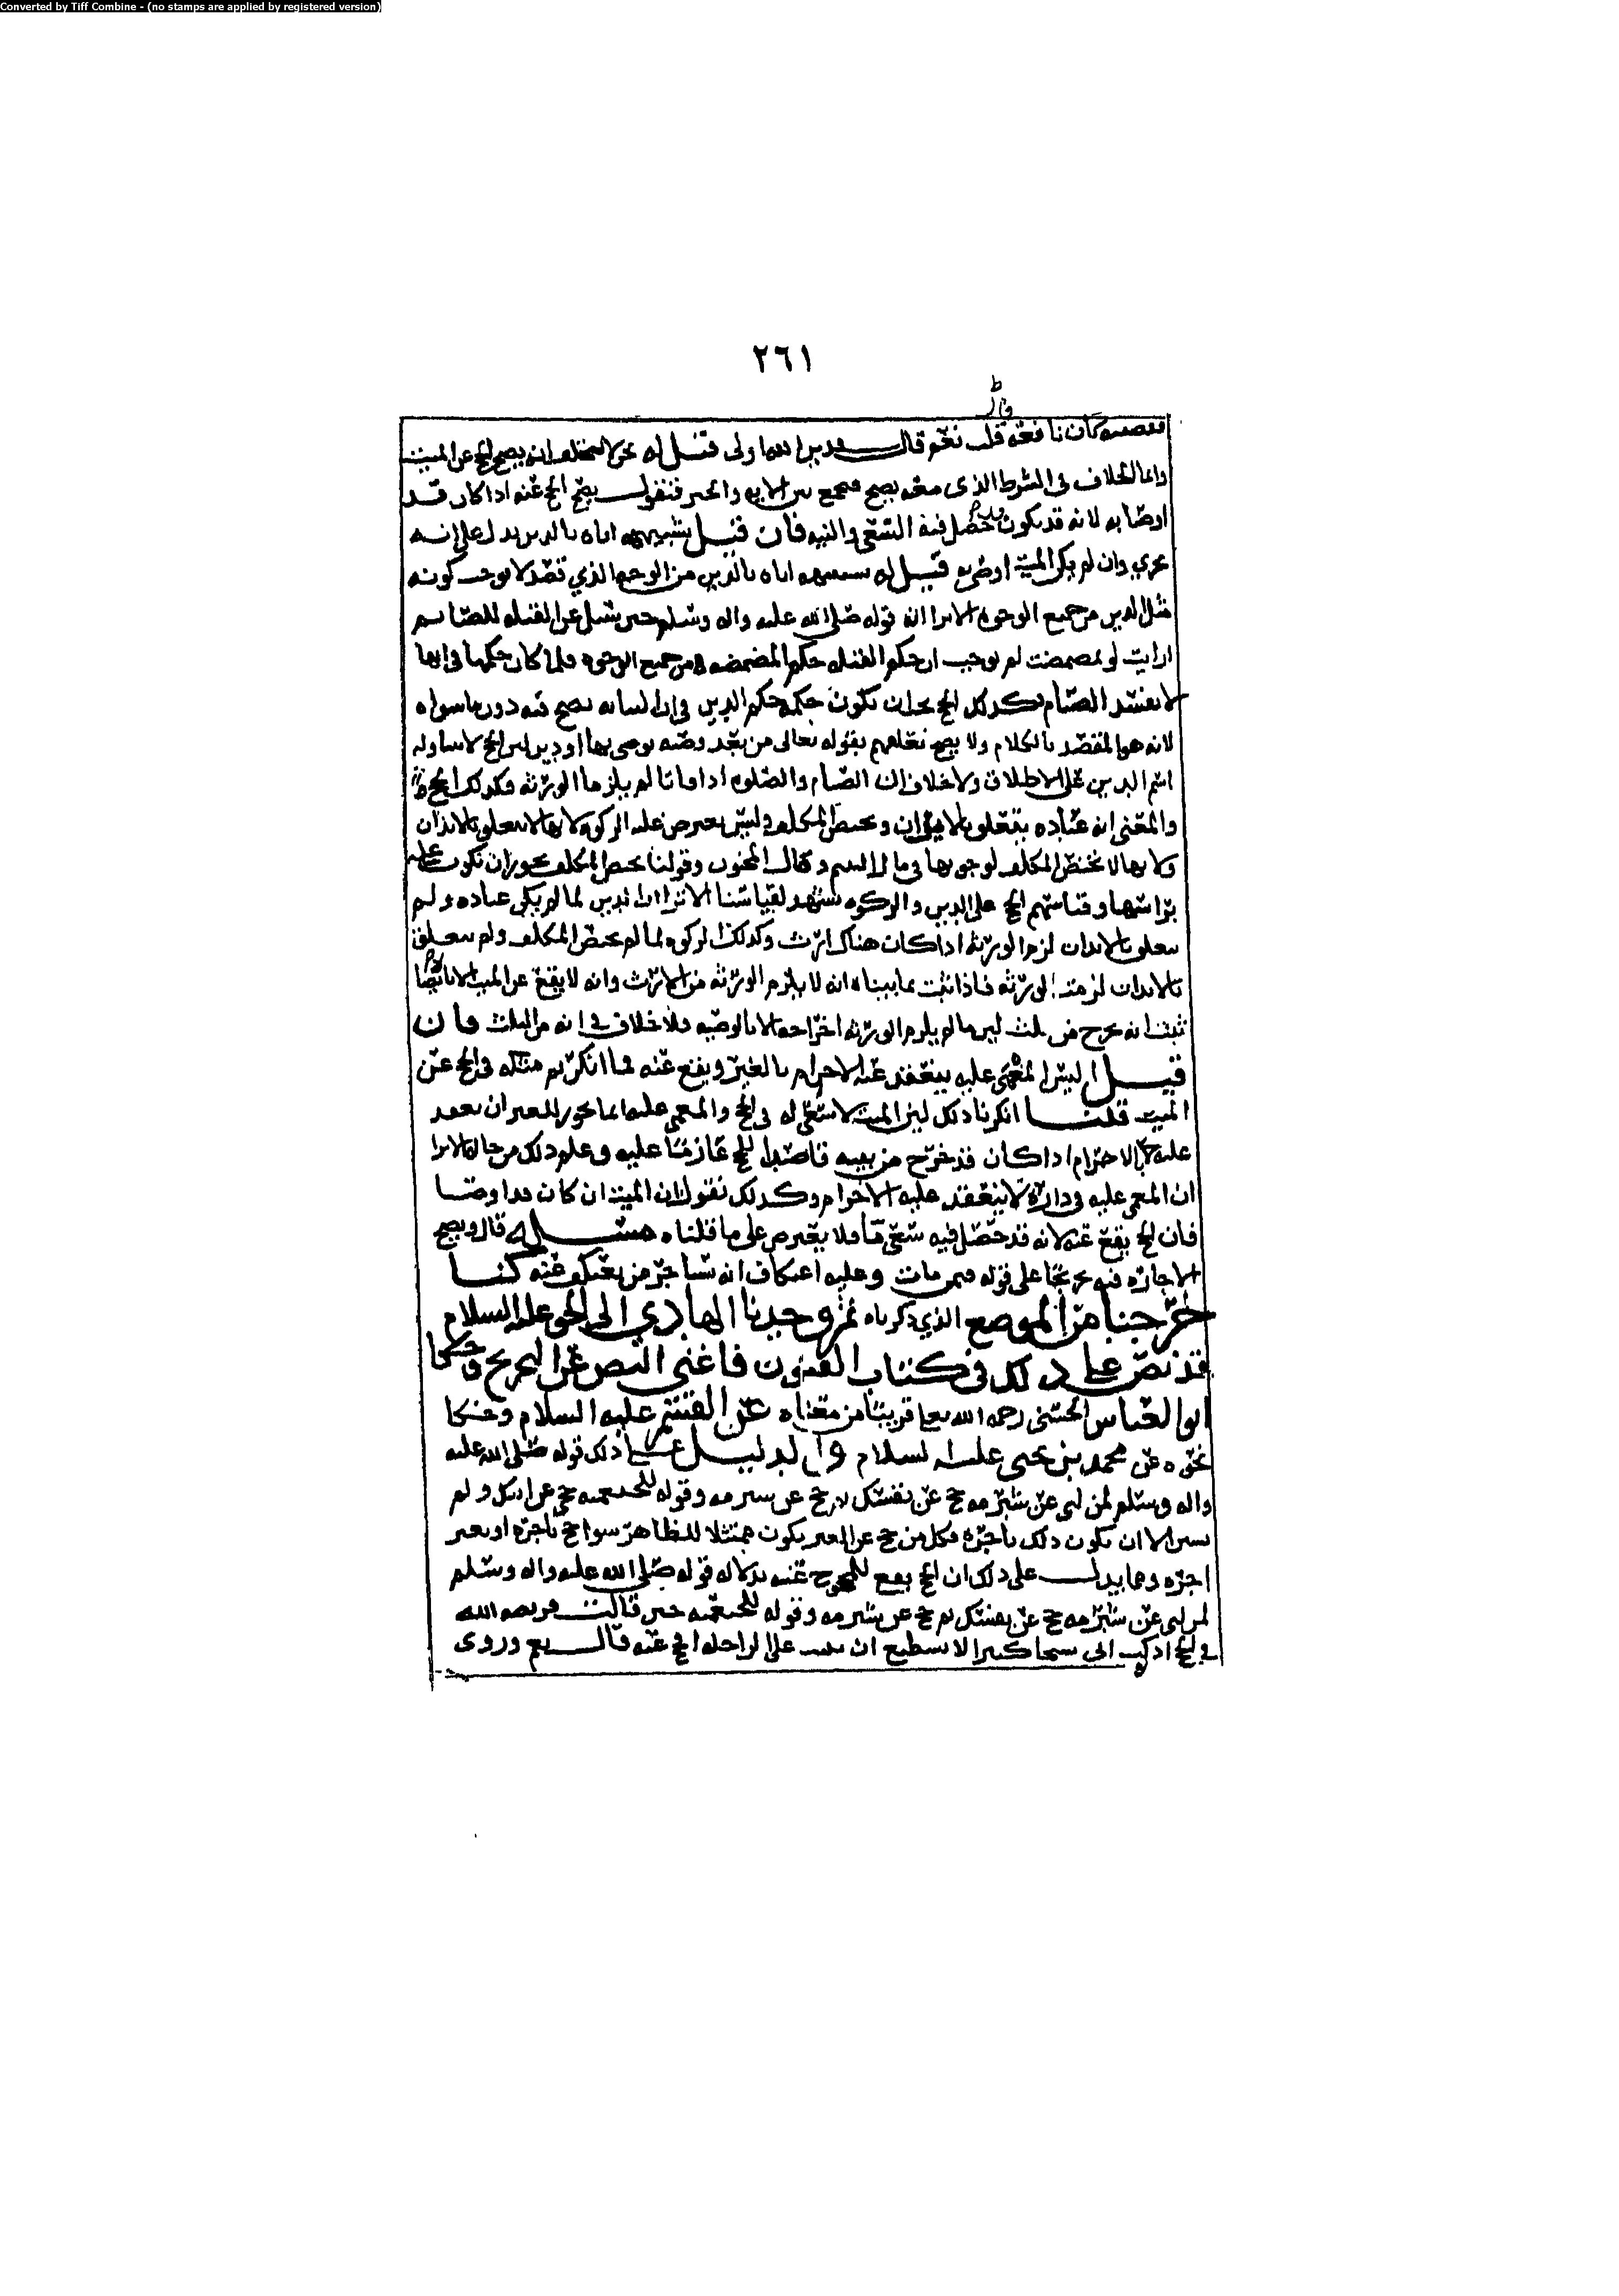 Converted by Tiff Combine - (no stamps are applied by registered version)
٢٦١
فقضيته كان نافعه قلت نعم قال فدين الله اولى قيل له نحن لا نخالف انه يصح الحج عن الميت
وانما الخلاف في الشرط الذي معه يصح فنجمع بين الايه والخبر فنقول يصح الحج عنه اذا كان قد
اوصا به لانه قد يكون حصل فيه السعي والنيه فان قيل تشبيهه اياه بالدين يدل على انه
يجزي وان لم يكن الميت اوصى به قيل له تشبيهه اياه بالدين من الوجه الذي قصد لا يوجب كونه
مثل الدين من جميع الوجوه الا ترا ان قوله صلى الله عليه واله وسلم حين سئل عن القبله للصايم
ارايت لو تمضمضت لم يوجب ان حكم القبله حكم المضمضه من جميع الوجوه فلما كان حكمها في انها
لا تفسد الصيام فكذلك الحج يجب ان يكون حكمه حكم الدين في ان لسانه يصح فيه دون ما سواه
لانه هو المقصد بالكلام ولا يصح تعلقهم بقوله تعالى من بعد وصيه يوصى بها او دين لان الحج لا يتناوله
اسم الدين على الاطلاق ولا خلاف ان الصيام والصلوه اذا فاتا لم يلزما الورثه فكذلك الحج
والمعنى انه عباده يتعلق بالابدان ويختص المكلف وليس يعترض عليه الزكوه لانها لا تتعلق بالابدان
ولانها لا تختص المكلف لوجوبها في مال اليتيم ومال المجنون وقولنا يختص المكلف يجوز ان تكون عله
براسها وقياسهم الحج على الدين والزكوه يشهد لقياسنا الا ترا ان الدين لما لم يكن عباده ولم
يتعلق بالابدان لزم الورثه اذا كان هناك ارث وكذلك الزكوه لما لم يختص المكلف ولم يتعلق
بالابدان لزمت الورثه فاذا ثبت بما بيناه انه لا يلزم الورثه من الارث وانه لا يقع عن الميت الا بايصا
ثبت انه يخرج من ثلث لان ما لم يلزم الورثه اخراجه الا بالوصيه فلا خلاف في انه من الثلث فان
قيل اليس المغمى عليه ينعقد عنه الاحرام بالغير ويقع عنه فما انكرتم مثله في الحج عن
الميت قلنا انكرنا ذلك لان الميت لا سعى له في الحج والمغمى عليه انما يجوز للغير ان يعقد
عليه الاحرام اذا كان قد خرج من بيته قاصدا للحج عازما عليه وعلم ذلك من حاله الا ترا
ان المغمى عليه في داره لا ينعقد عليه الاحرام وكذلك نقول ان الميت ان كان قد اوصا
فان الحج يقع عنه لانه قد حصل فيه سعي ما فلا يعترض على ما قلناه مسئله قال ويصح
الاجاره فيه تخريجا على قوله فيمن مات وعليه اعتكاف انه يستاجر من يعتكف عنه كنا
خرجنا من الموضع الذي ذكرناه ثم وجدنا الهادي الى الحق عليه السلام
قد نص على ذلك في كتاب الفنون فاغنى النص عن التخريج وحكا
ابو العباس الحسني رحمه الله تعا قريبا من معناه عن القسم عليه السلام وحكا
نحوه عن محمد بن يحيى عليه السلام والدليل على ذلك قوله صلى الله عليه
واله وسلم لمن لبى عن شبرمه حج عن نفسك ثم حج عن شبرمه وقوله للخثعميه حجي عن ابيك ولم
يستثن الا ان يكون ذلك باجره فكل من حج عن الغير يكون ممتثلا للظاهر سوا حج باجره او بغير
اجره ومما يدل على ذلك ان الحج يقع للمحجوج عنه بدلاله قوله صلى الله عليه واله وسلم
لمن لبى عن شبرمه حج عن نفسك ثم حج عن شبرمه وقوله للخثعميه حين قالت فريضه الله
في الحج ادركت ابي شيخا كبيرا لا يستطيع ان يثبت على الراحله افاحج عنه قال نعم وروى